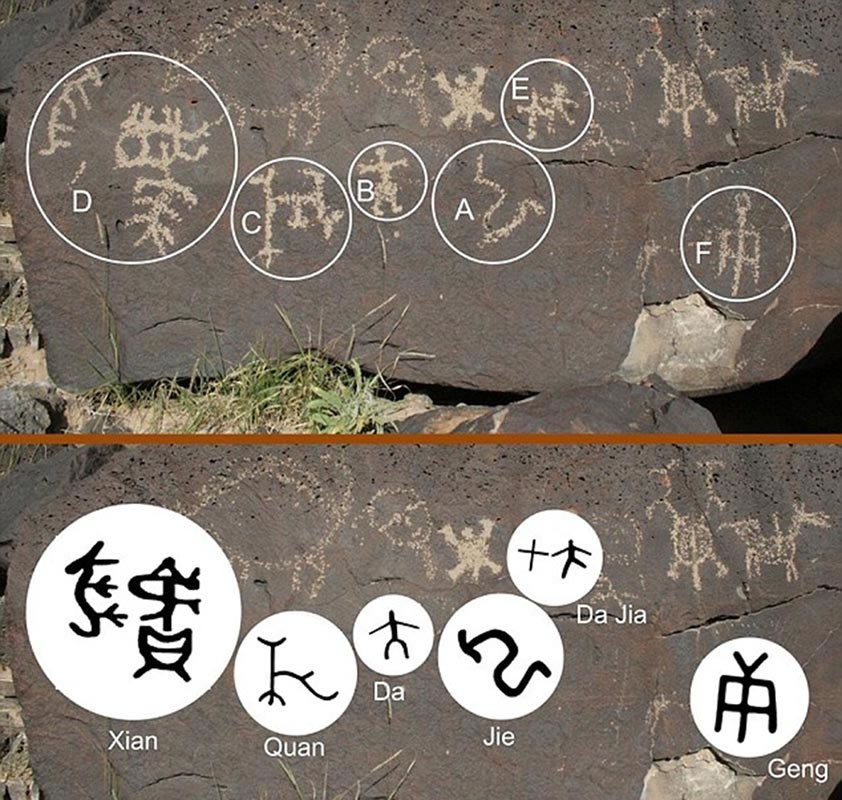 E
D
B
A
C
F
Da Jia
Da
Xian
Quan
Jie
Geng